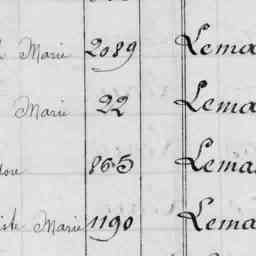 Marie 2089 Lema
Marie 22 Lema
dore 865 Lema
Marie 1190 Lema